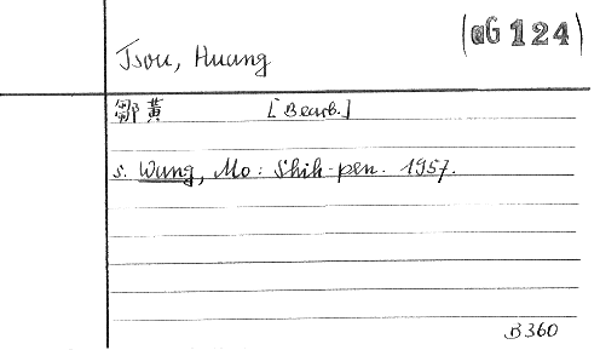 (aG 124)
Tsou, Huang
鄒黃 [Bearb.]
s. Wang, Mo: Shih-pen. 1957.
B360